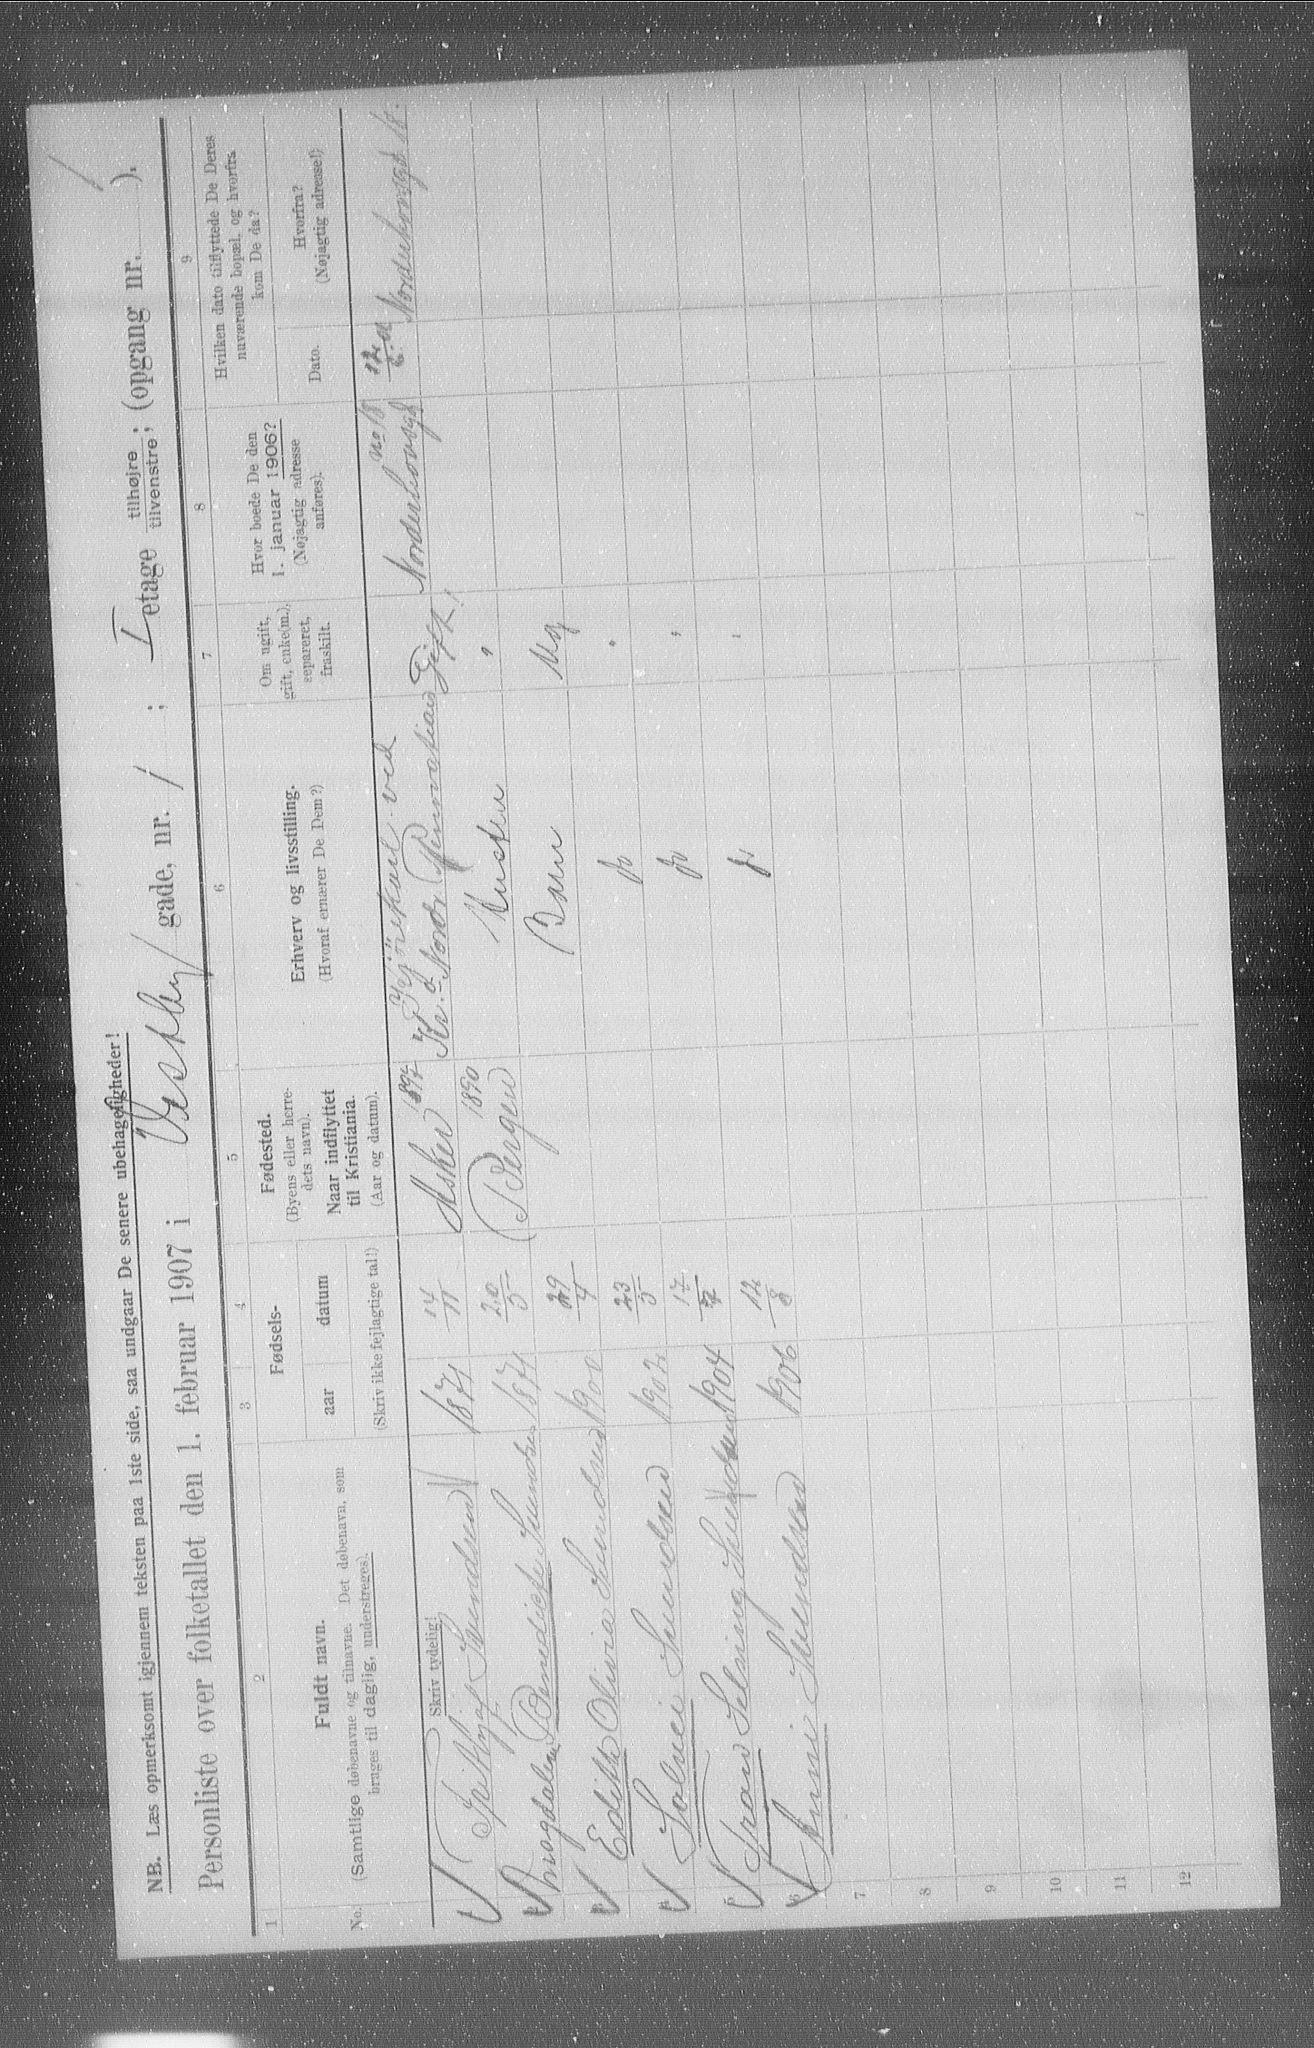 NB. Læs opmerksomt igjennem teksten paa 1ste side, saa undgaar De senere ubehageligheder!
Personliste over folketallet den 1. februar 1907 i Vestby gade, nr. 1 ; I etage tilhøjre, tilvenstre, (opgang nr. ).
1 2 3 4 5 6 7 8 9
No.
Fuldt navn.
(Samtlige døbenavne og tilnavne. Det døbenavn, som
bruges til daglig, understreges).
Skriv tydelig!
Fødsels-
aar datum
(Skriv ikke fejlagtige tal!)
Fødested.
(Byens eller herre-
dets navn).
Naar indflyttet
til Kristiania.
(Aar og datum).
Erhverv og livsstilling.
(Hvoraf ernærer De Dem?)
Om ugift,
gift, enke(m.),
separeret,
fraskilt.
Hvor boede De den
1. januar 1906?
(Nøjagtig adresse
anføres).
Hvilken dato tilflyttede De Deres
nuværende bopæl, og hvorfra
kom De da?
Dato.
Hvorfra?
(Nøjagtig adresse!)
Svendsen 1871 14/11 Asker 1897 ved Kr.a Nordr Gift! Norderhovsgd no 18 Norderhovsgd 18.
Magdalene Benedicte Svendsen 1871 20/5 Bergen 1890 Hustru "
3 Edith Olivia Svendsen 1900 29/4 Barn Ug
4 Solvei Svendsen 1902 23/5 do "
5 Svendsen 1904 17 do "
6 Svendsen 1906 12/8 do "
7
8
9
10
11
12